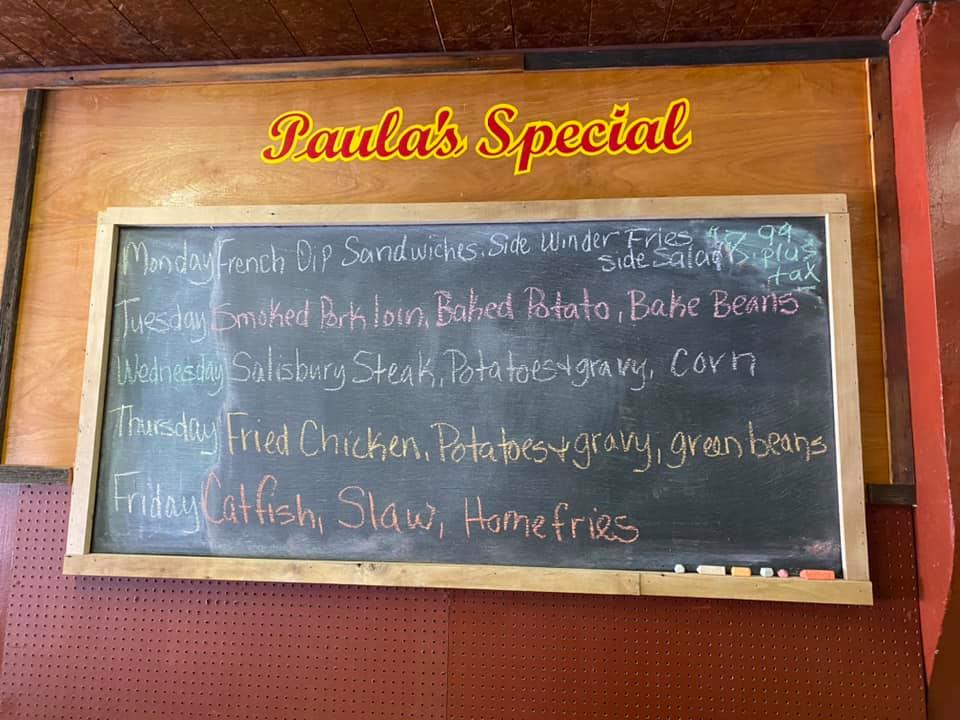 Paula's Special
Monday French Dip Sandwiches. Side Winder Fries $7.99
side salad plus
tax
Tuesday Smoked Pork loin, Baked Potato, Bake Beans
Wednesday Salisbury Steak, Potatoes + gravy, Corn
Thursday Fried Chicken, Potatoes + gravy, green beans
Friday Catfish, Slaw, Homefries